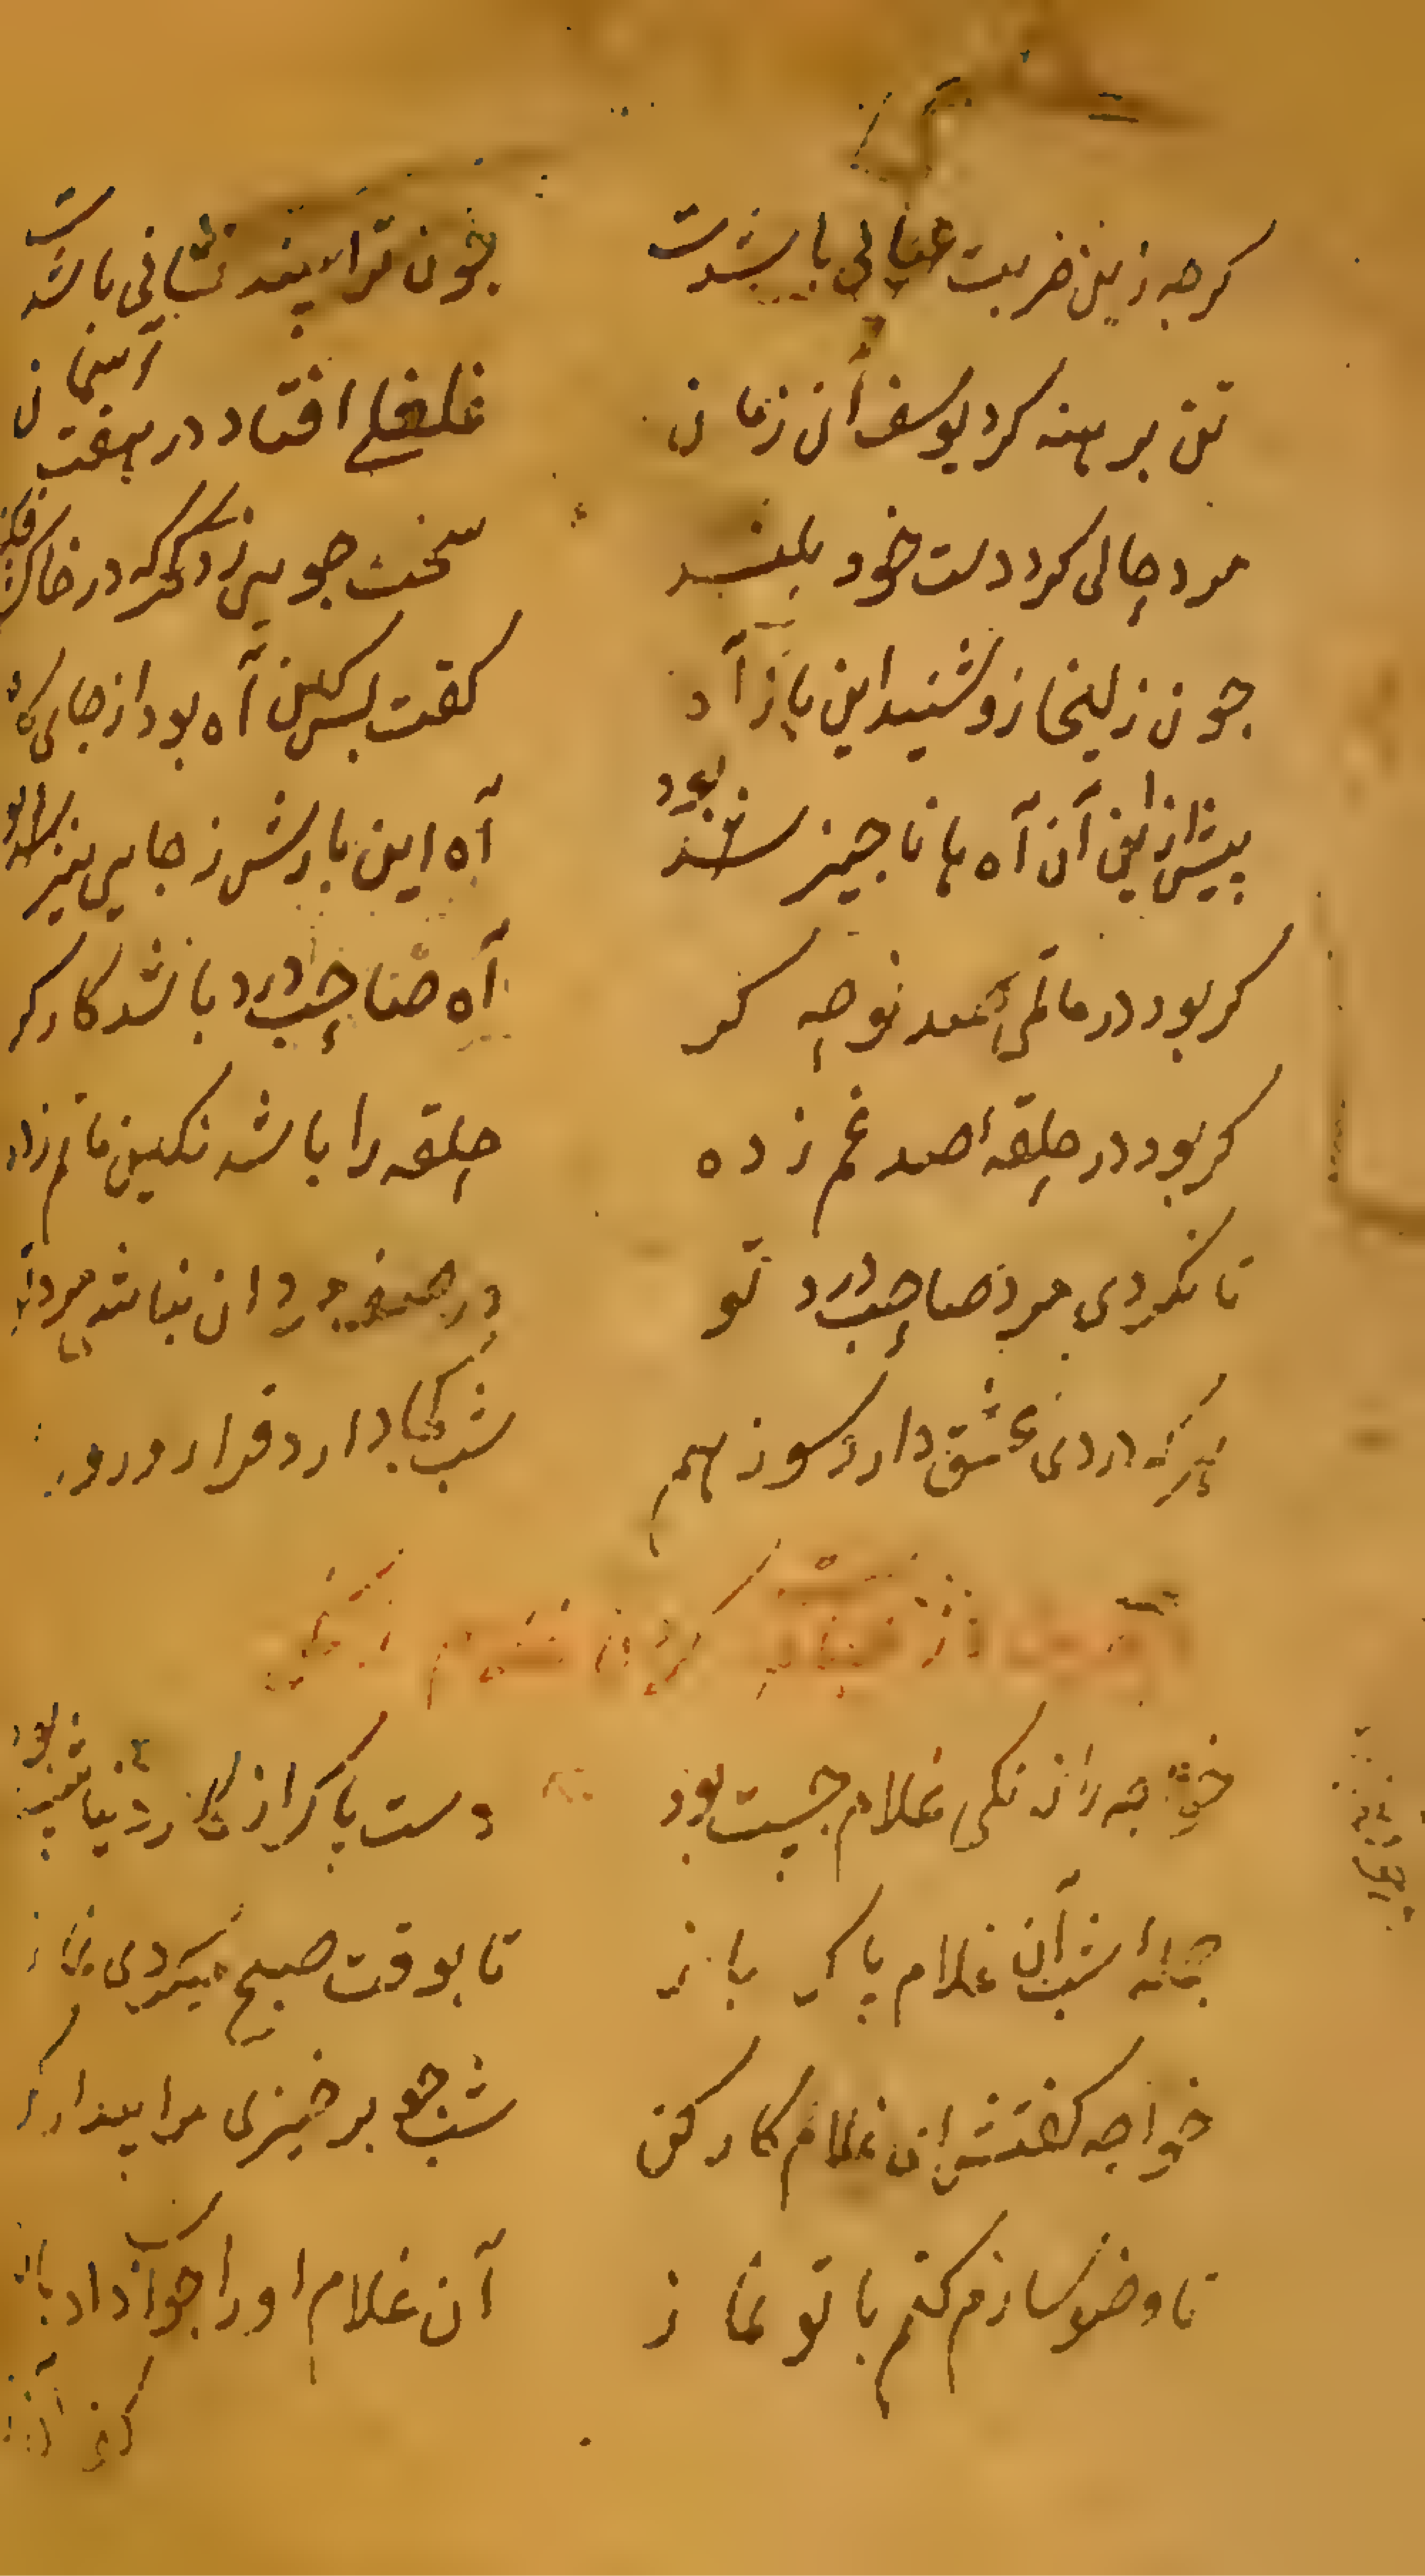 کرچه زین ضربت عنائی باشدت چون ترا بیند نشانی باشدت
تن برهنه کرد یوسف آن زمان غلغلی افتاد در هفت آسمان
مرد حالی کرد دست خود بلند سخت چوبی زد که در خاکش فکند
چون زلیخا زو شنید این بار آه کفت بس کین آه بود از جای کاه
پیش ازین آن آه ها ناچیز بود آه این بارش ز جایی نیز بود
کر بود در ماتمی صد نوحه کر آه صاحب درد باشد کارکر
کر بود در حلقهٔ صد غم زده حلقه را باشد نکین ماتم زده
تا نکردی مرد صاحب درد تو در صف مردان نباشی مرد تو
هرکه درد عشق دارد سوز هم شب کجا دارد قرار و روز
خواجه را زنکی غلام چست بود دست پاک از کار دنیا شسته بود
جمله شب آن غلام پاک باز تا بوقت صبح میکردی نماز
خواجه کفتش ای غلام کارکن شب چو برخیزی مرا بیدار کن
تا وضو سازم کنم با تو نماز آن غلام او را جواب داد باز